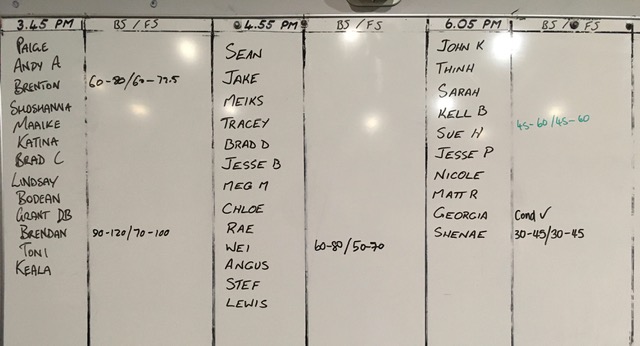 3.45 PM BS / FS
PAIGE
ANDY A
BRENTON 60-80/60-77.5
SHOSHANNA
MAAIKE
KATINA
BRAD C
LINDSAY
BODEAN
GRANT DB
BRENDAN 90-120/70-100
TONI
KEALA
4.55 PM BS / FS
SEAN
JAKE
MEIKS
TRACEY
BRAD D
JESSE B
MEG M
CHLOE
RAE
WEI 60-80/50-70
ANGUS
STEF
LEWIS
6.05 PM BS / FS
JOHN K
THINH
SARAH
KELL B
SUE H 45-60/45-60
JESSE P
NICOLE
MATT R
GEORGIA Cond ✓
SHENAE 30-45/30-45